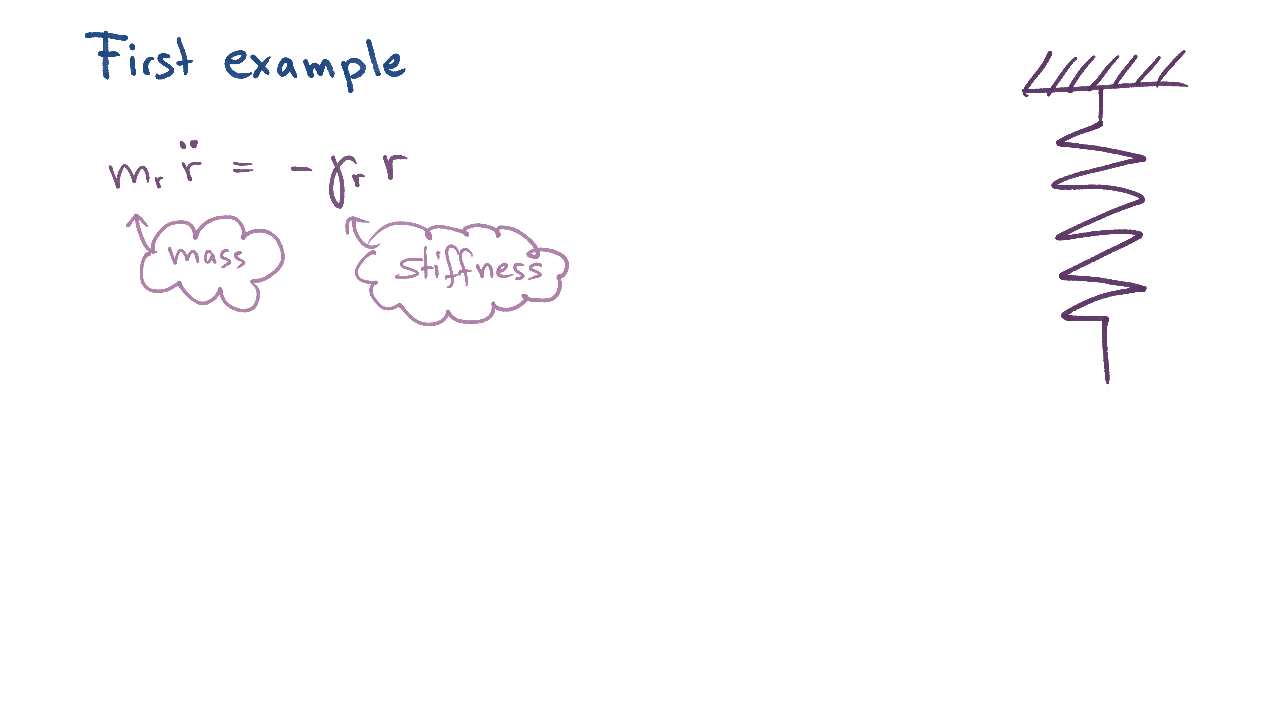 First example
mᵣ r̈ = - γᵣ r
mass
stiffness